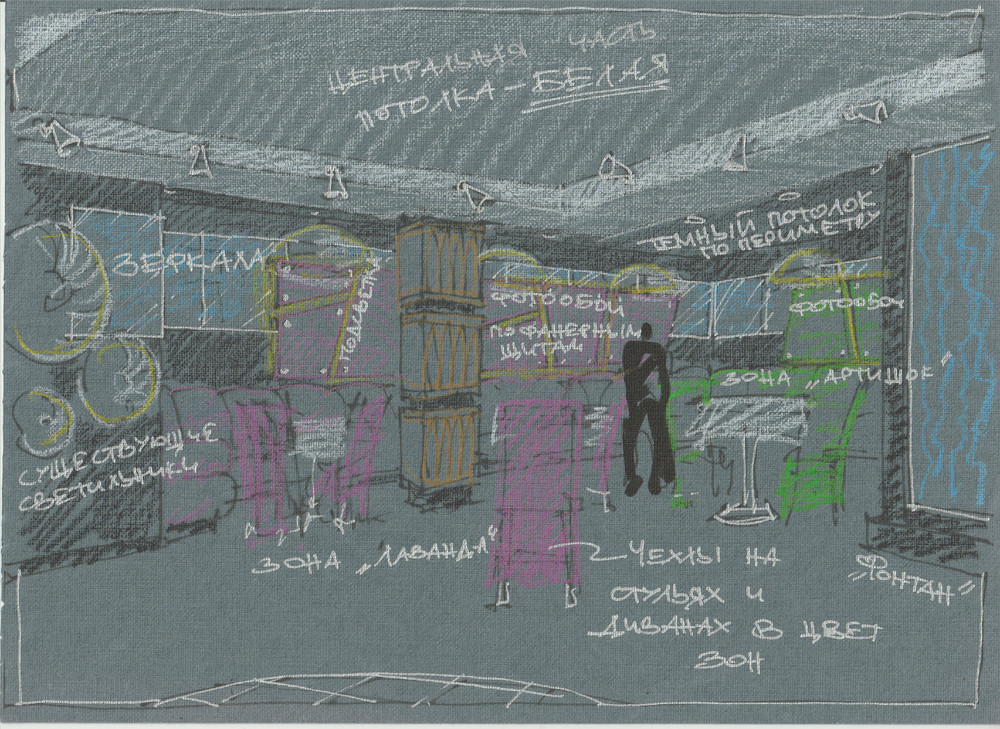 ЦЕНТРАЛЬНАЯ ЧАСТЬ
ПОТОЛКА – БЕЛАЯ
ТЕМНЫЙ ПОТОЛОК
ПО ПЕРИМЕТРУ
ЗЕРКАЛА
ПОДСВЕТКА
ФОТООБОИ
ПО ФАНЕРНЫМ
ЩИТАМ
ФОТООБОИ
ЗОНА „АРТИШОК"
СУЩЕСТВУЮЩИЕ
СВЕТИЛЬНИКИ
ЗОНА „ЛАВАНДА"
ЧЕХЛЫ НА
СТУЛЬЯХ И
ДИВАНАХ В ЦВЕТ
ЗОН
„ФОНТАН"